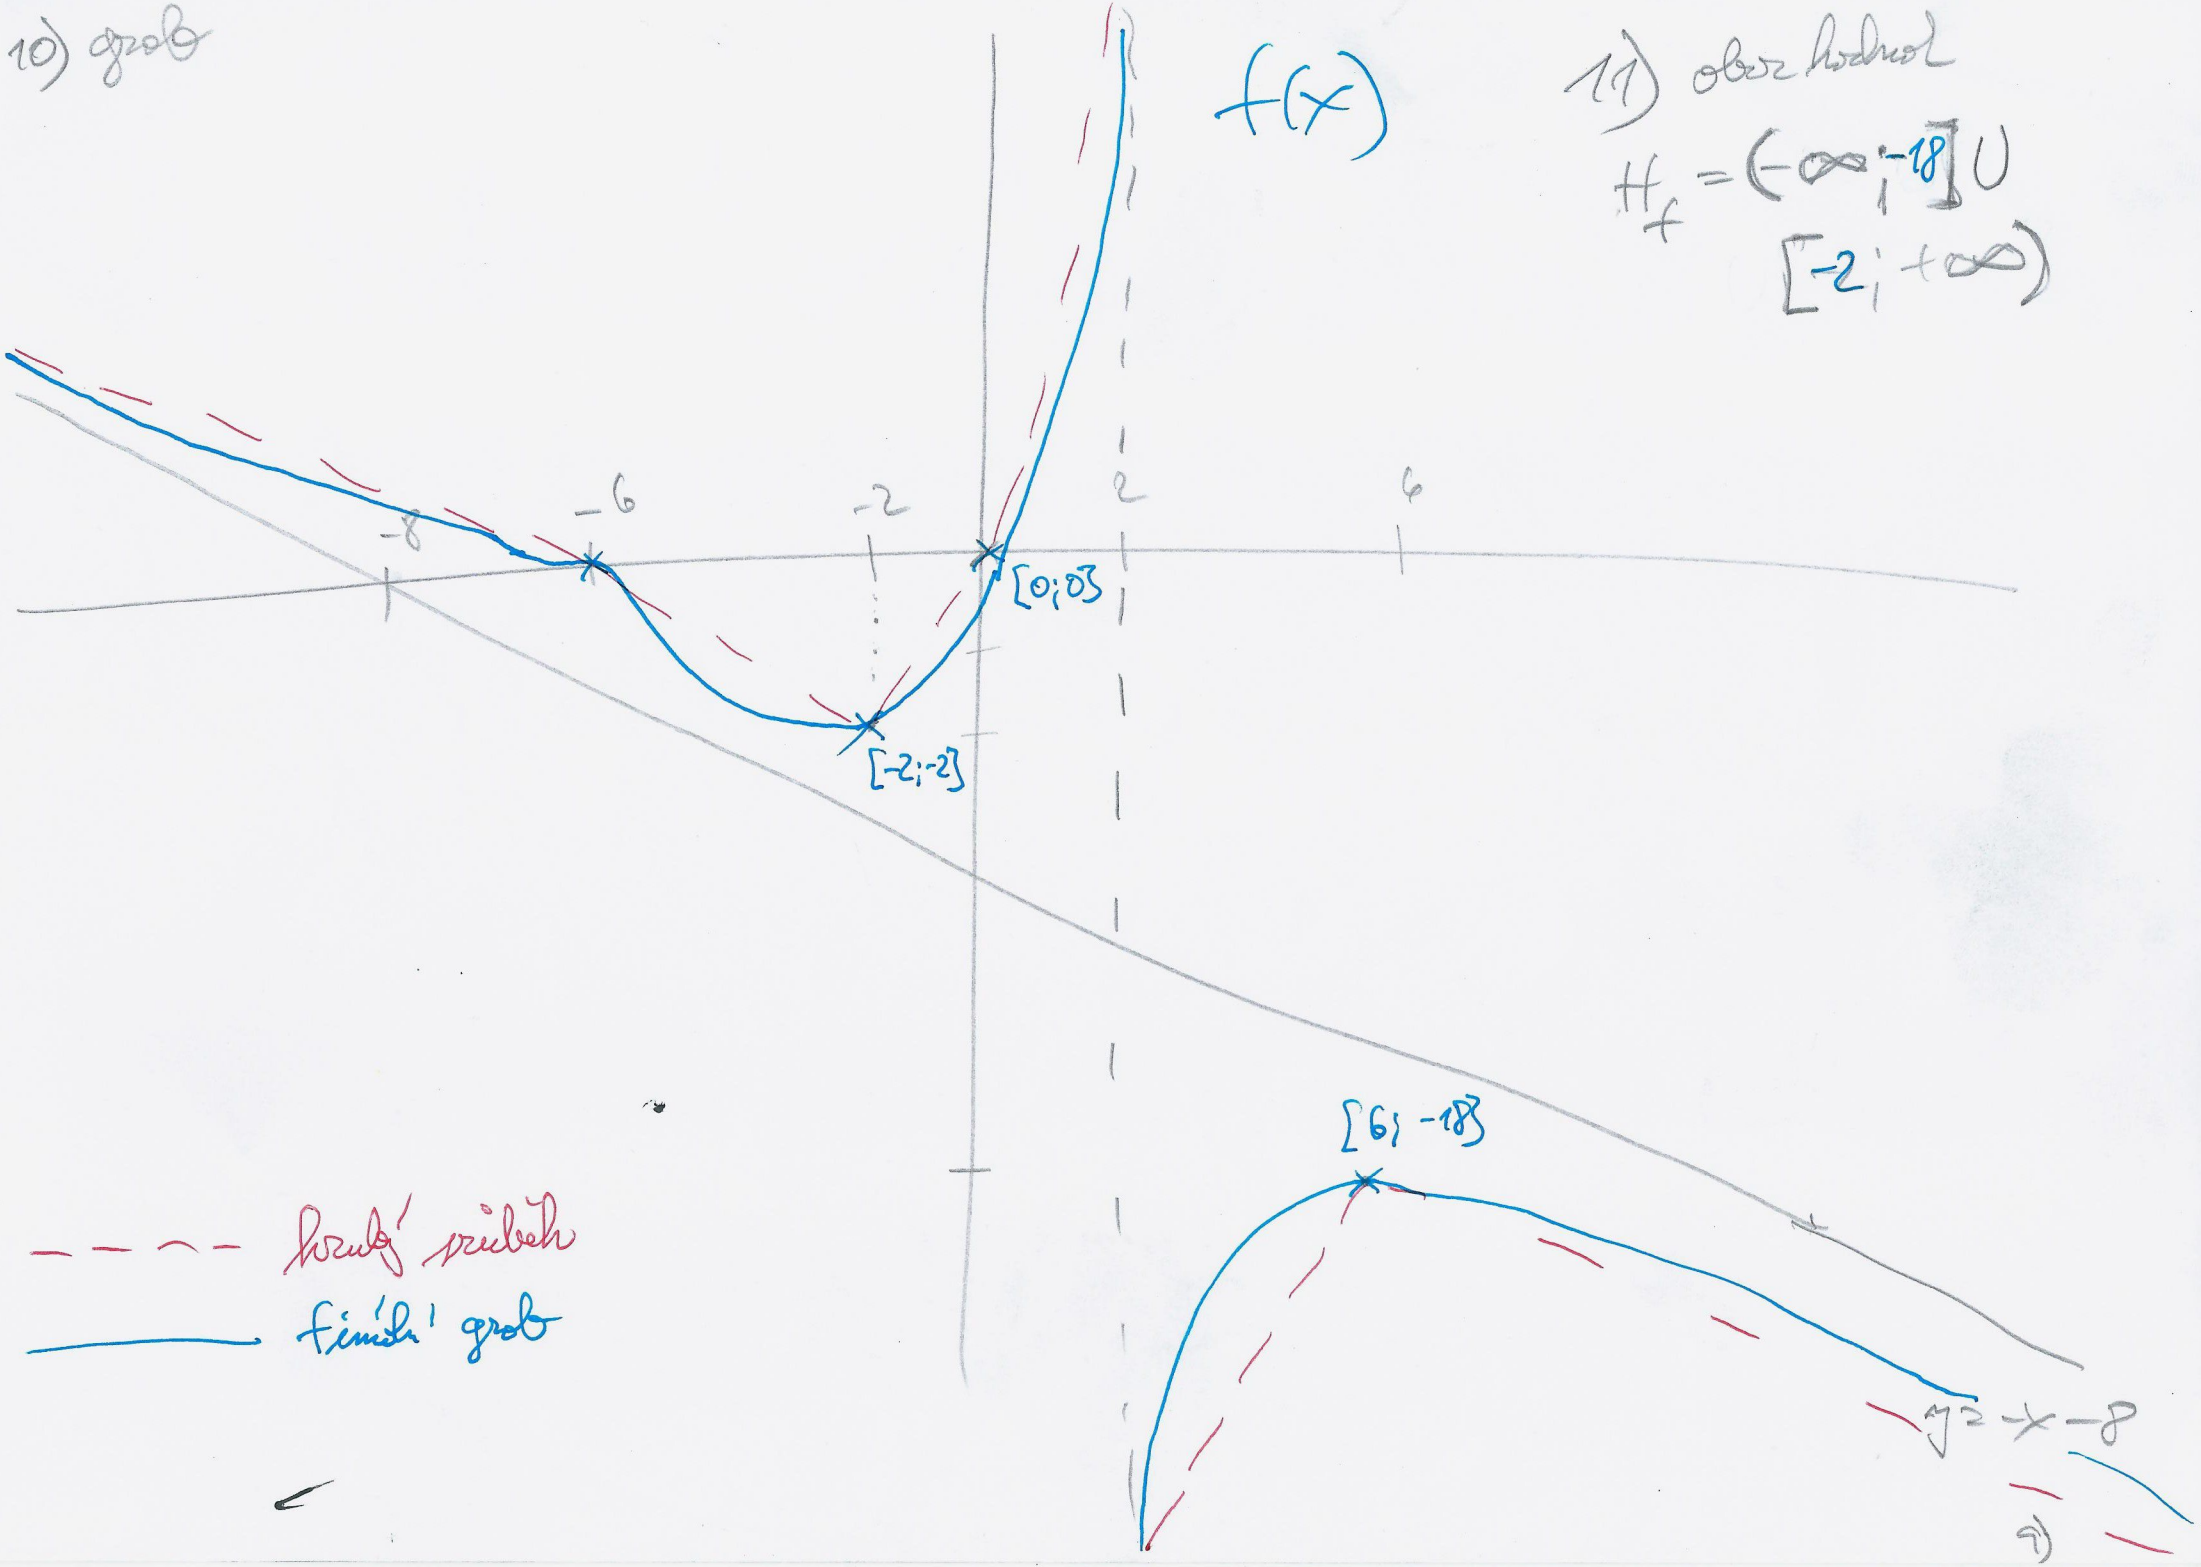 10) graf
f(x)
11) obor hodnot
H_f = (-∞; -18] ∪
[-2; +∞)
-8
-6
-2
2
6
[0;0]
[-2;-2]
[6; -18]
hrubý průběh
finální graf
y = -x - 8
9)